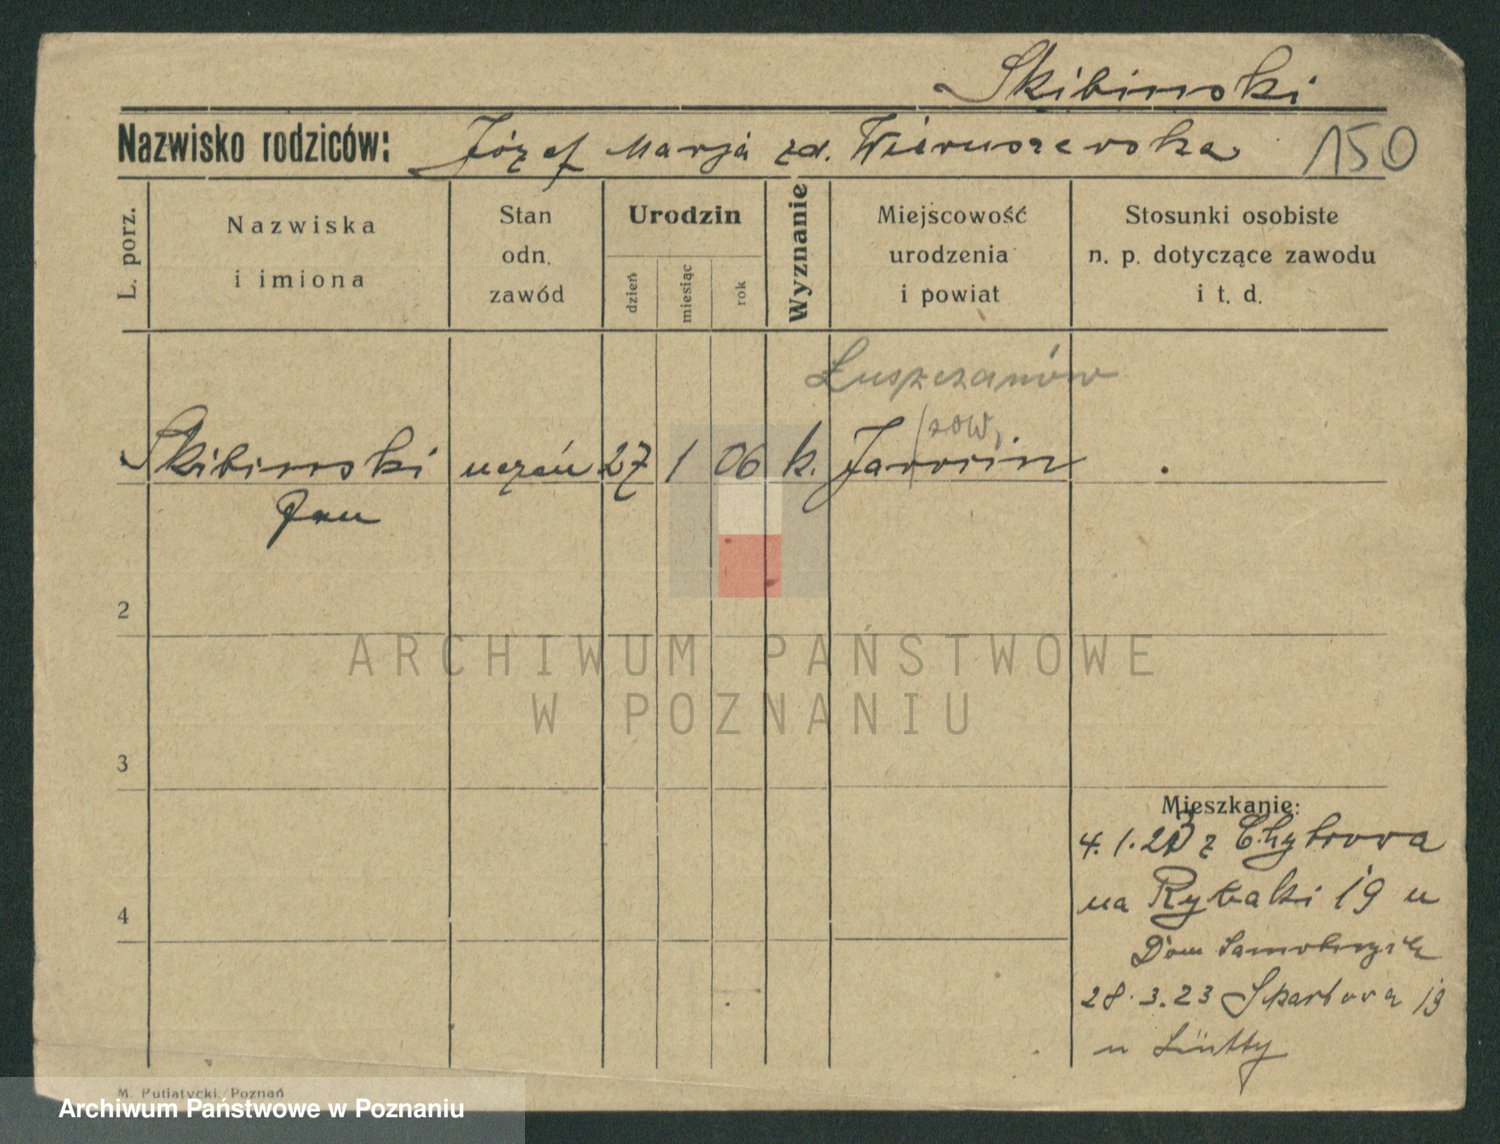 Skibinski
Nazwisko rodziców: Józef Marja zd. Wieruszewska 150
L. porz.
Nazwiska
i imiona
Stan
odn.
zawód
Urodzin
dzień
miesiąc
rok
Wyznanie
Miejscowość
urodzenia
i powiat
Stosunki osobiste
n. p. dotyczące zawodu
i t. d.
Łuszczanów
pow.
Skibinski uczeń 27 1 06 k. Jarocin
Jan
2
3
4
Mieszkanie:
4.1.23 z Chybowa
na Rybaki 19 u
Dom
28.3.23 Skarbowa 19
u
M. Putiatycki, Poznań
ARCHIWUM PAŃSTWOWE
W POZNANIU
Archiwum Państwowe w Poznaniu